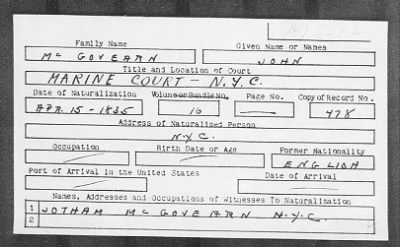 Family Name Given Name or Names
McGOVEARN JOHN
Title and Location of Court
MARINE COURT - N.Y.C.
Date of Naturalization Volume or Bundle No. Page No. Copy of Record No.
APR. 15 - 1835 16 — 478
Address of Naturalized Person
N.Y.C.
Occupation Birth Date or Age Former Nationality
— — ENGLISH
Port of Arrival in the United States Date of Arrival
— —
Names, Addresses and Occupations of Witnesses To Naturalization
1 JOTHAM McGOVEARN N.Y.C.
2